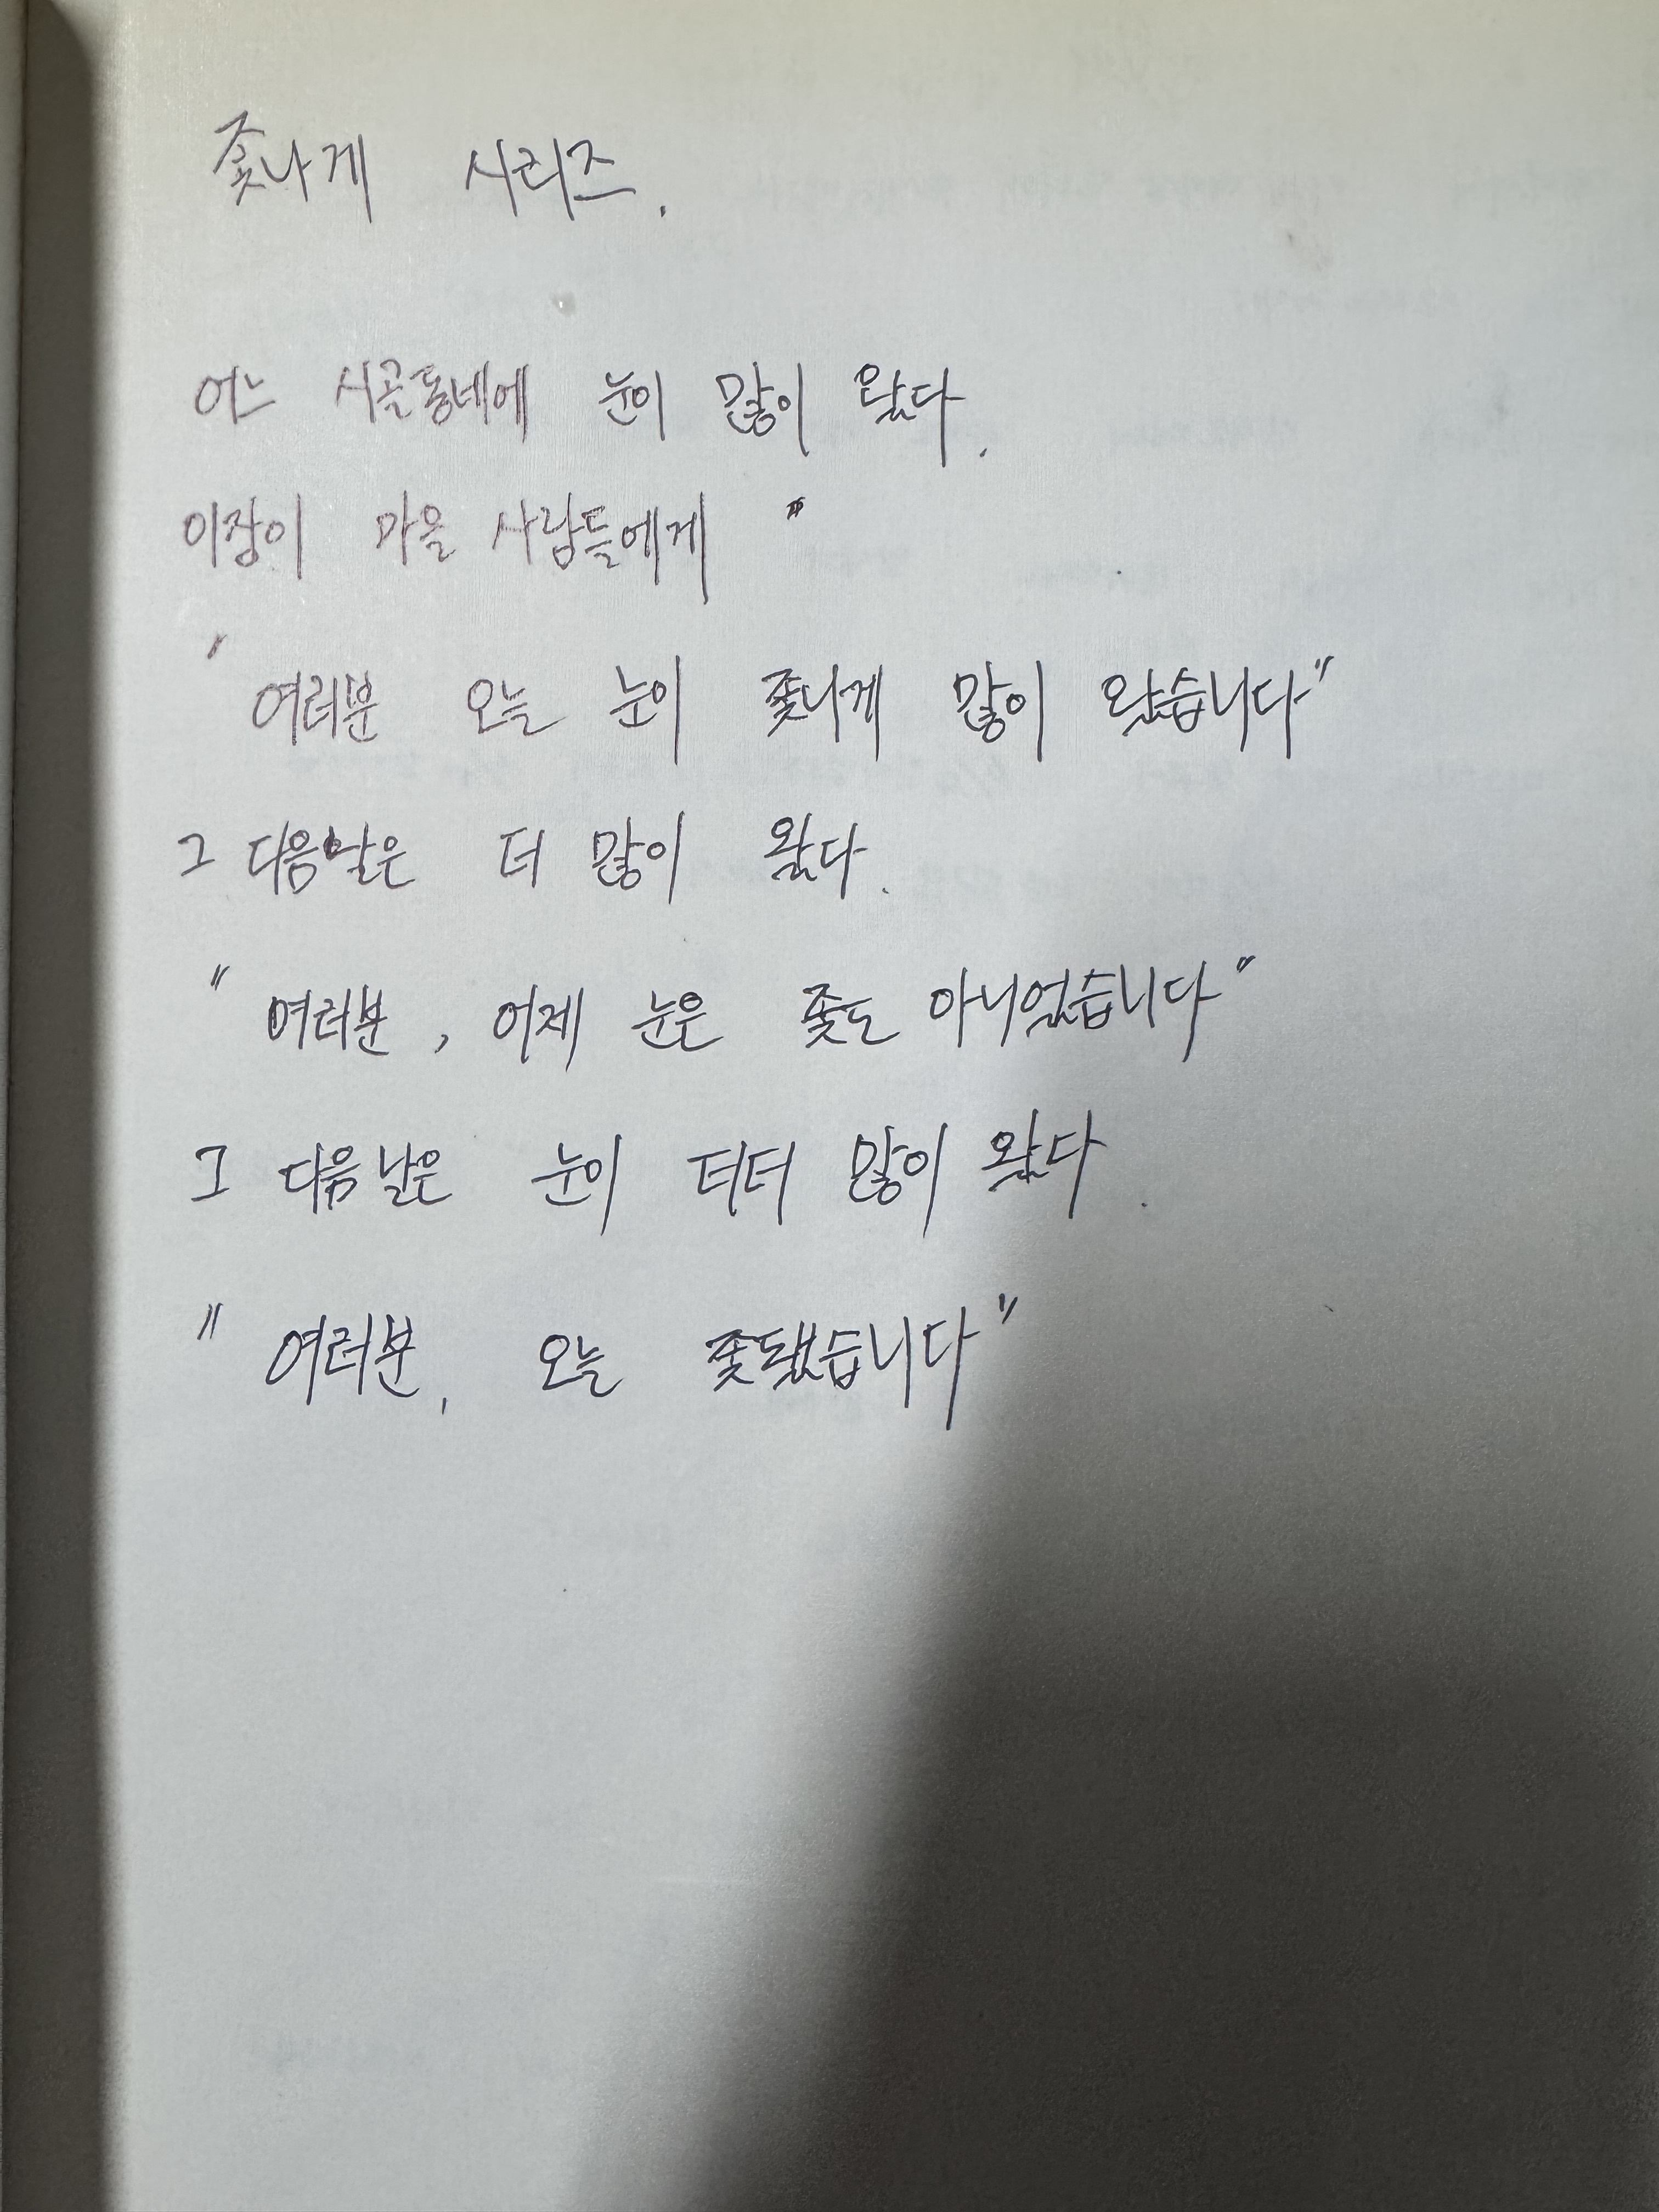 좆나게 시리즈.
어느 시골동네에 눈이 많이 왔다.
이장이 마을 사람들에게
"여러분 오늘 눈이 좆나게 많이 왔습니다"
그 다음날은 더 많이 왔다.
"여러분, 어제 눈은 좆도 아니었습니다"
그 다음날은 눈이 더더 많이 왔다.
"여러분, 오늘 좆됐습니다"